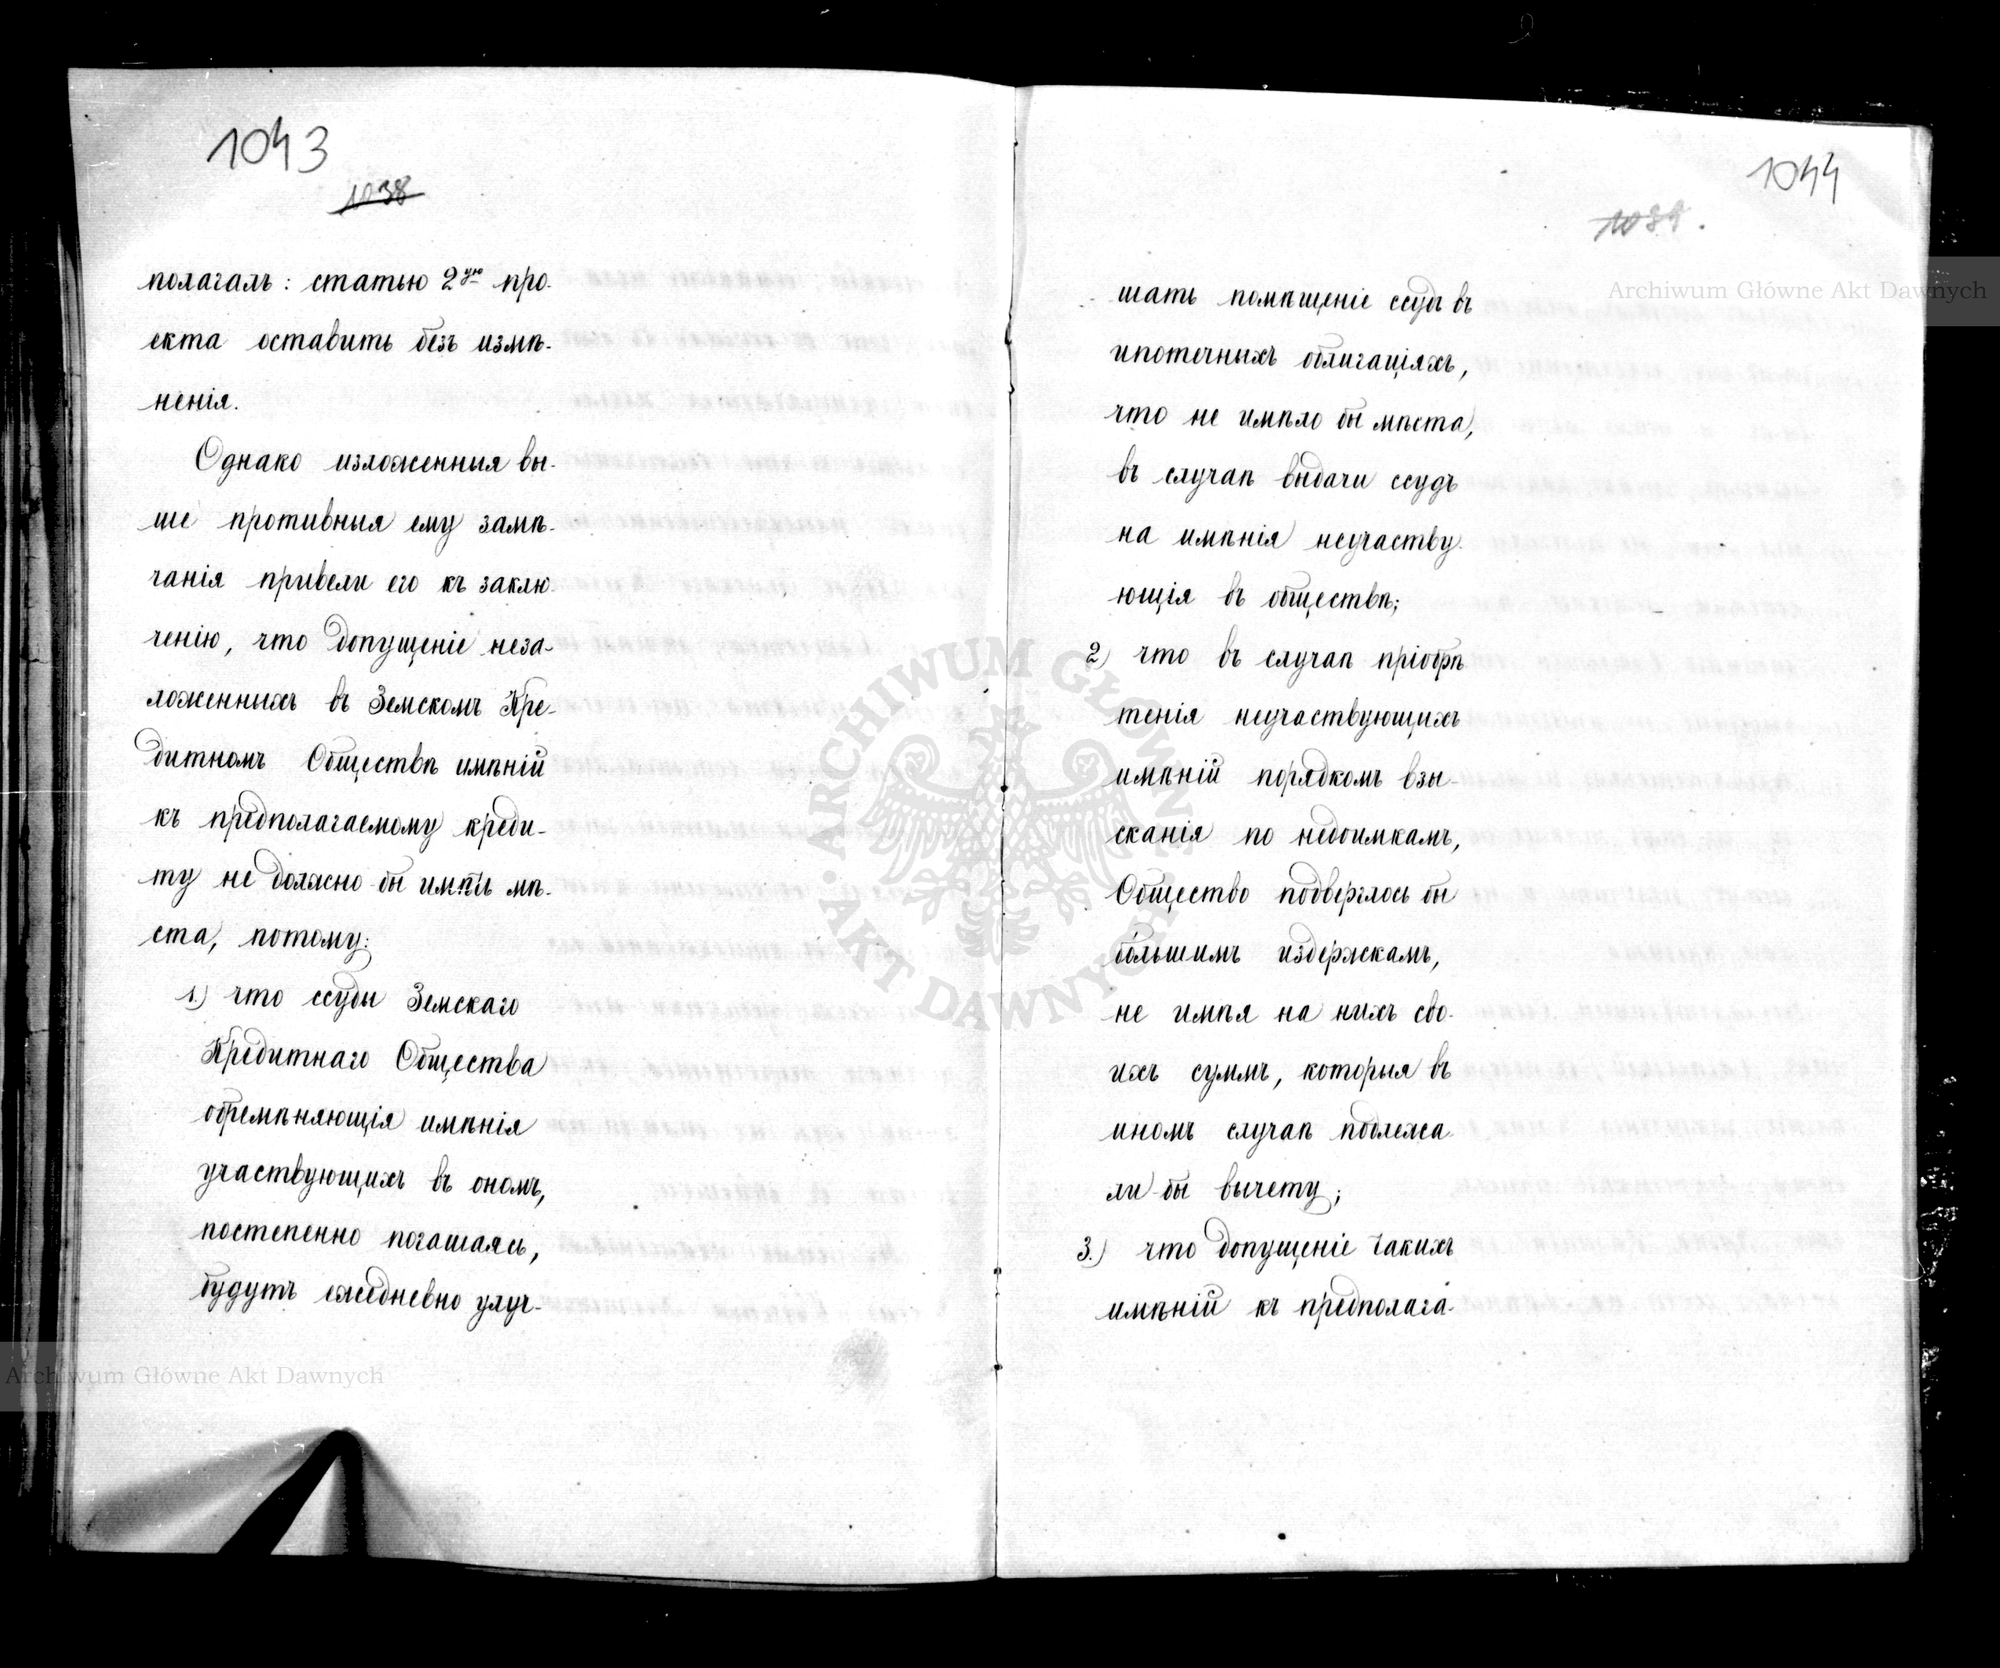 1043
1038
полагалъ: статью 2ую про-
екта оставить безъ измѣ-
ненія.
Однако изложенныя вы-
ше противныя ему замѣ-
чанія привели его къ заклю-
ченію, что допущеніе неза-
ложенныхъ въ Земскомъ Кре-
дитномъ Обществѣ имѣній
къ предполагаемому креди-
ту не должно бы имѣть мѣ-
ста, потому:
1.) что ссуды Земскаго
Кредитнаго Общества
обремѣняющія имѣнія
участвующихъ въ ономъ,
постепенно погашаясь,
будутъ ежедневно улуч-
1044
1039.
шать помѣщеніе ссудъ въ
ипотечныхъ облигаціяхъ,
что не имѣло бы мѣста,
въ случаѣ выдачи ссудъ
на имѣнія неучаству-
ющія въ обществѣ;
2) что въ случаѣ пріобрѣ
тенія неучаствующихъ
имѣній порядкомъ взы-
сканія по недоимкамъ,
Общество подверглось бы
бо́льшимъ издержкамъ,
не имѣя на нихъ сво-
ихъ суммъ, которыя въ
иномъ случаѣ подлежа-
ли-бы вычету;
3.) что допущеніе такихъ
имѣній къ предполага-
Archiwum Główne Akt Dawnych
Archiwum Główne Akt Dawnych
ARCHIWUM GŁÓWNE AKT DAWNYCH